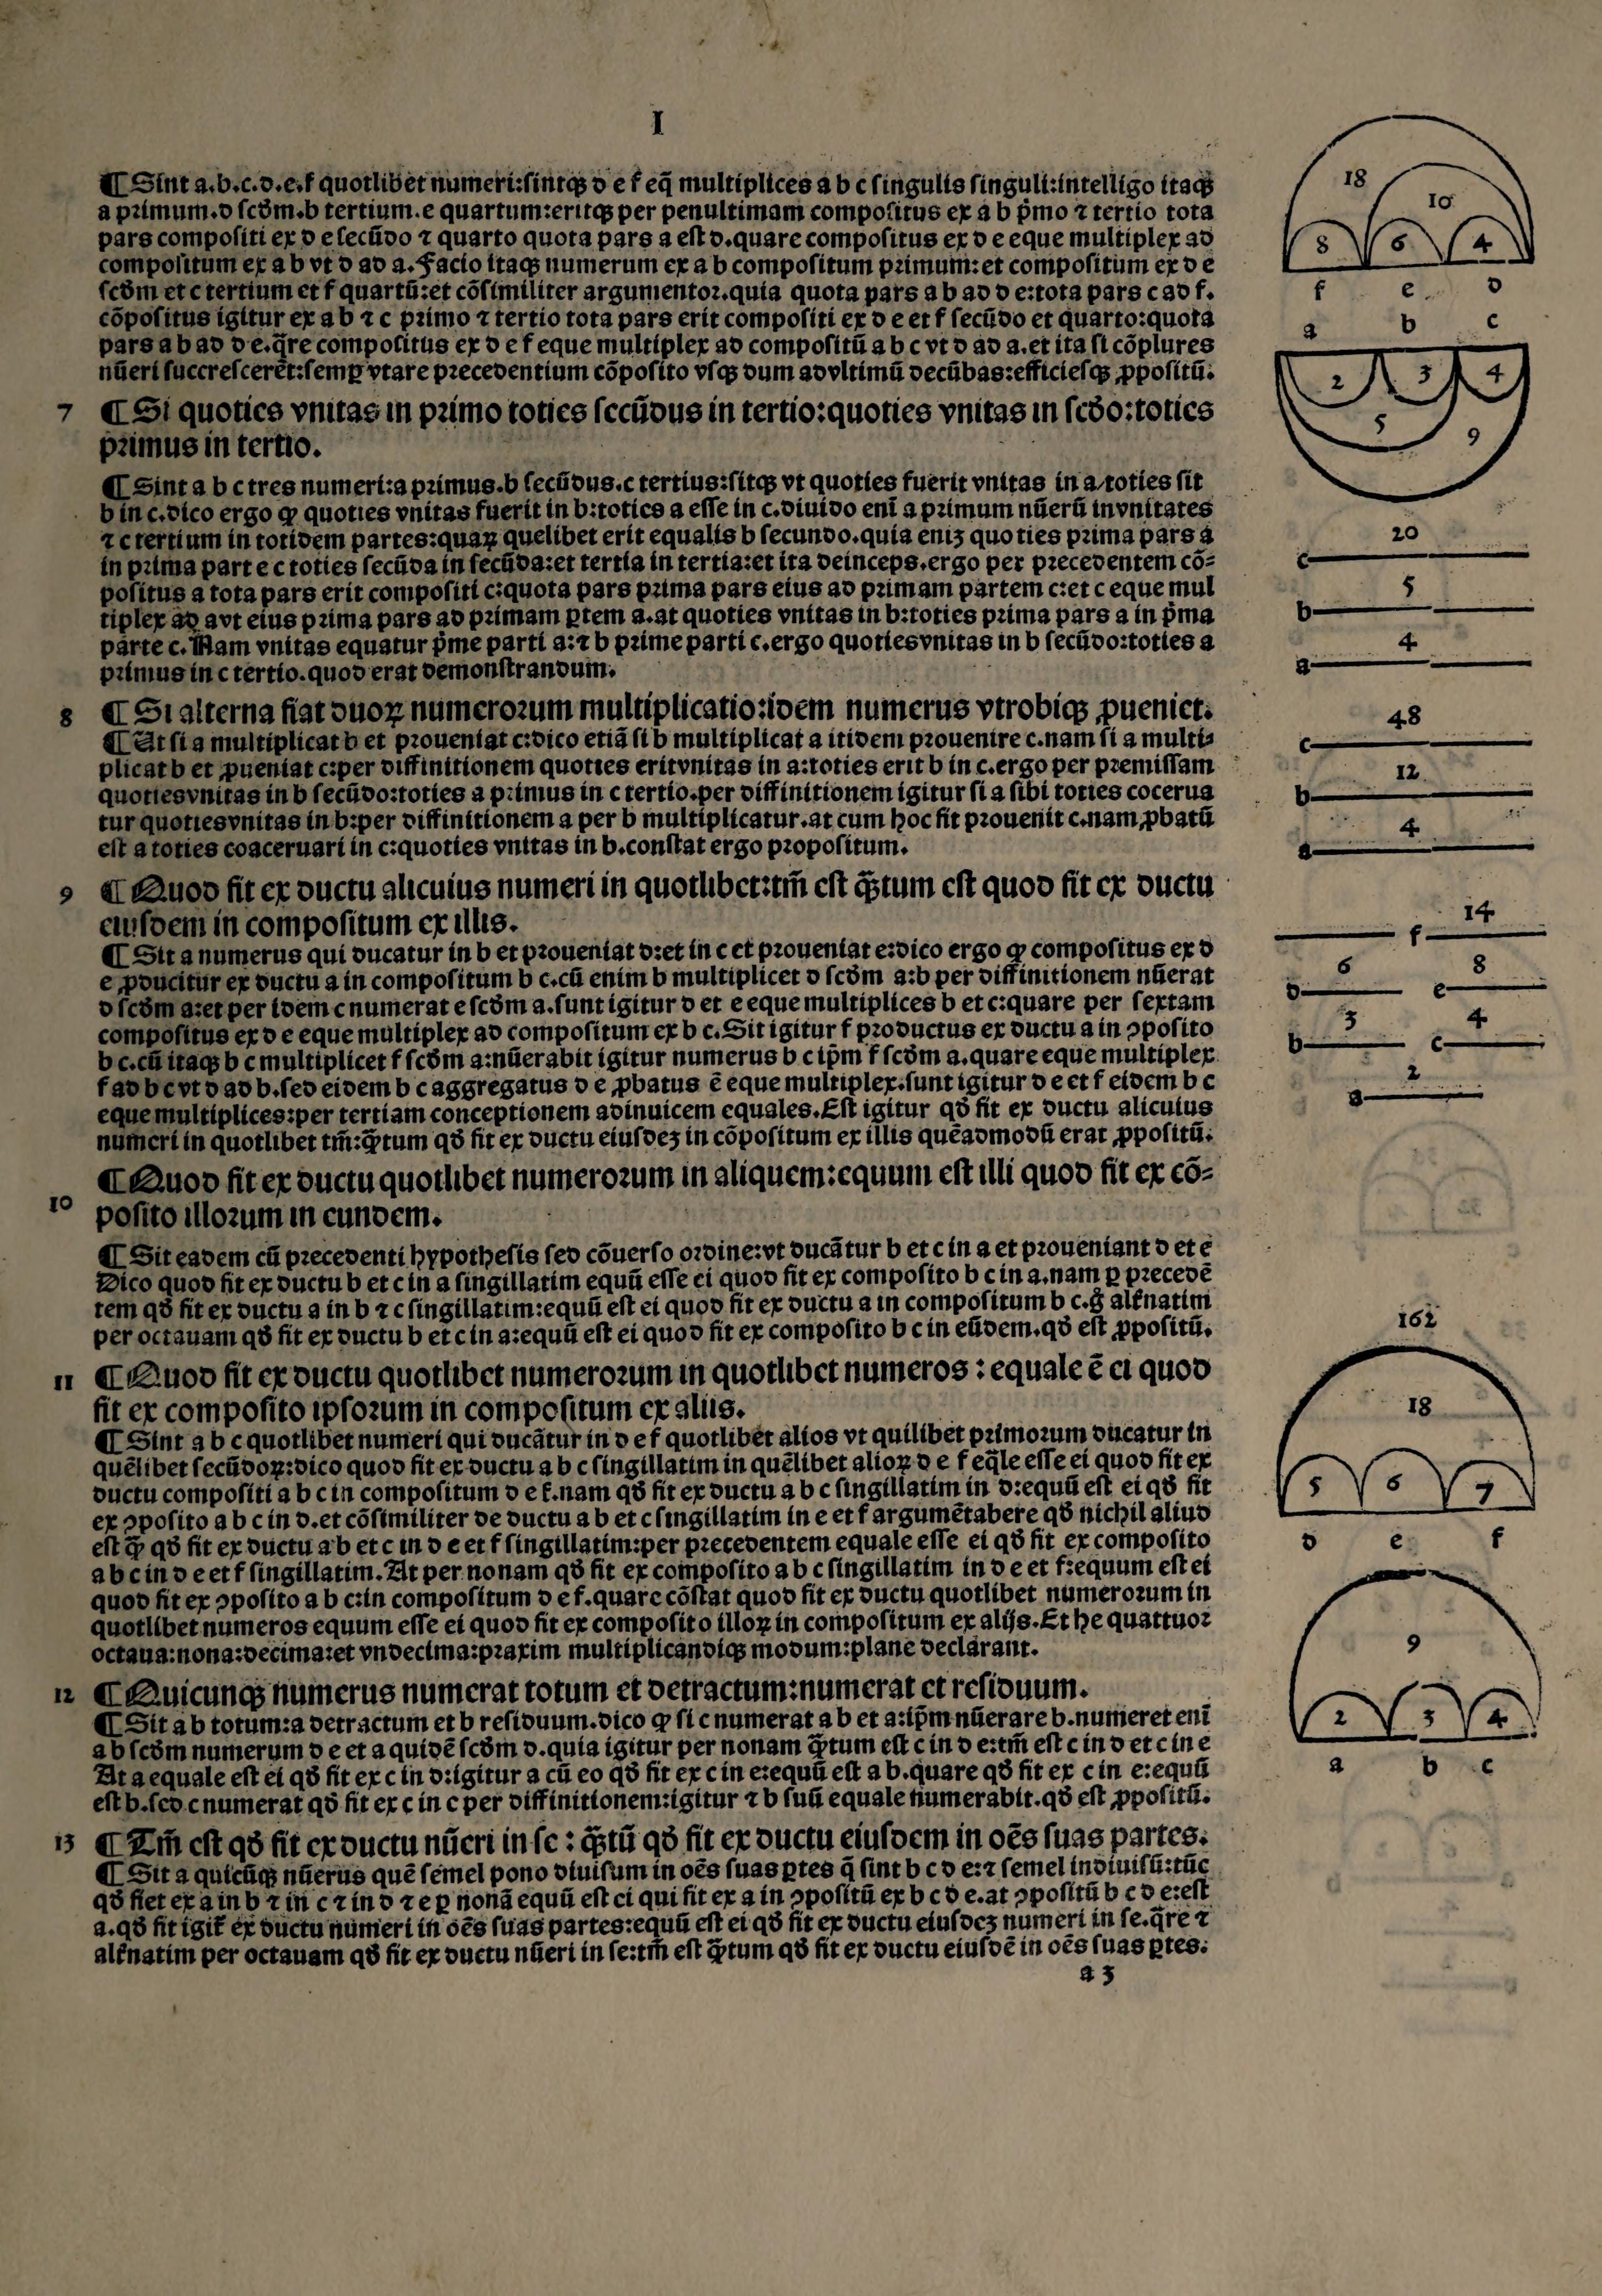 I
¶Sint a.b.c.d.e.f quotlibet numeri:sintqʒ d e f eq̃ multiplices a b c singulis singuli:intelligo itaqʒ
a primum.d scd̃m.b tertium.e quartum:eritqʒ per penultimam compositus ex a b p̃mo ⁊ tertio tota
pars compositi ex d e secũdo ⁊ quarto quota pars a est d.quare compositus ex d e eque multiplex ad
compositum ex a b vt d ad a.Facio itaqʒ numerum ex a b compositum primum:et compositum ex d e
scd̃m et c tertium et f quartũ:et cõsimiliter argumentor.quia quota pars a b ad d e:tota pars c ad f.
cõpositus igitur ex a b ⁊ c primo ⁊ tertio tota pars erit compositi ex d e et f secũdo et quarto:quota
pars a b ad d e.q̃re compositus ex d e f eque multiplex ad compositũ a b c vt d ad a.et ita si cõplures
nũeri succrescerẽt:semꝑ vtare precedentium cõposito vsqʒ dum advltimũ decũbas:efficiesqʒ ꝓpositũ.
7 ¶Si quoties vnitas in primo toties secũdus in tertio:quoties vnitas in scd̃o:toties
primus in tertio.
¶Sint a b c tres numeri:a primus.b secũdus.c tertius:sitqʒ vt quoties fuerit vnitas in a/toties sit
b in c.dico ergo ꝙ quoties vnitas fuerit in b:toties a esse in c.diuido enĩ a primum nũerũ invnitates
⁊ c tertium in totidem partes:quaꝝ quelibet erit equalis b secundo.quia eniʒ quo ties prima pars a
in prima part e c toties secũda in secũda:et tertia in tertia:et ita deinceps.ergo per precedentem cõ⸗
positus a tota pars erit compositi c:quota pars prima pars eius ad primam partem c:et c eque mul
tiplex ad avt eius prima pars ad primam ꝑtem a.at quoties vnitas in b:toties prima pars a in p̃ma
parte c.Nam vnitas equatur p̃me parti a:⁊ b prime parti c.ergo quotiesvnitas in b secũdo:toties a
primus in c tertio.quod erat demonstrandum.
8 ¶Si alterna fiat duoꝝ numerorum multiplicatio:idem numerus vtrobiqʒ ꝓueniet.
¶Ut si a multiplicat b et proueniat c:dico etiã si b multiplicat a itidem prouenire c.nam si a multi⸗
plicat b et ꝓueniat c:per diffinitionem quoties eritvnitas in a:toties erit b in c.ergo per premissam
quotiesvnitas in b secũdo:toties a primus in c tertio.per diffinitionem igitur si a sibi toties cocerua
tur quotiesvnitas in b:per diffinitionem a per b multiplicatur.at cum hoc fit prouenit c.nam ꝓbatũ
est a toties coaceruari in c:quoties vnitas in b.constat ergo propositum.
9 ¶Quod fit ex ductu alicuius numeri in quotlibet:tm̃ est q̃ʒtum est quod fit ex ductu
eiusdem in compositum ex illis.
¶Sit a numerus qui ducatur in b et proueniat d:et in c et proueniat e:dico ergo ꝙ compositus ex d
e ꝓducitur ex ductu a in compositum b c.cũ enim b multiplicet d scd̃m a:b per diffinitionem nũerat
d scd̃m a:et per idem c numerat e scd̃m a.sunt igitur d et e eque multiplices b et c:quare per sextam
compositus ex d e eque multiplex ad compositum ex b c.Sit igitur f productus ex ductu a in ꝯposito
b c.cũ itaqʒ b c multiplicet f scd̃m a:nũerabit igitur numerus b c ip̃m f scd̃m a.quare eque multiplex
f ad b c vt d ad b.sed eidem b c aggregatus d e ꝓbatus ẽ eque multiplex.sunt igitur d e et f eidem b c
eque multiplices:per tertiam conceptionem adinuicem equales.Est igitur qd̃ fit ex ductu alicuius
numeri in quotlibet tm̃:q̃ʒtum qd̃ fit ex ductu eiusdeʒ in cõpositum ex illis quẽadmodũ erat ꝓpositũ.
¶Quod fit ex ductu quotlibet numerorum in aliquem:equum est illi quod fit ex cõ⸗
10 posito illorum in eundem.
¶Sit eadem cũ precedenti hypothesis sed cõuerso ordine:vt ducãtur b et c in a et proueniant d et e
Dico quod fit ex ductu b et c in a singillatim equũ esse ei quod fit ex composito b c in a.nam ꝑ precedẽ
tem qd̃ fit ex ductu a in b ⁊ c singillatim:equũ est ei quod fit ex ductu a in compositum b c.g̃ alt̃natim
per octauam qd̃ fit ex ductu b et c in a:equũ est ei quod fit ex composito b c in eũdem.qd̃ est ꝓpositũ.
11 ¶Quod fit ex ductu quotlibet numerorum in quotlibet numeros : equale ẽ ei quod
fit ex composito ipsorum in compositum ex aliis.
¶Sint a b c quotlibet numeri qui ducãtur in d e f quotlibet alios vt quilibet primorum ducatur in
quẽlibet secũdoꝝ:dico quod fit ex ductu a b c singillatim in quẽlibet alioꝝ d e f eq̃le esse ei quod fit ex
ductu compositi a b c in compositum d e f.nam qd̃ fit ex ductu a b c singillatim in d:equũ est ei qd̃ fit
ex ꝯposito a b c in d.et cõsimiliter de ductu a b et c singillatim in e et f argumẽtabere qd̃ nichil aliud
est q̃ʒ qd̃ fit ex ductu a b et c in d e et f singillatim:per precedentem equale esse ei qd̃ fit ex composito
a b c in d e et f singillatim.At per nonam qd̃ fit ex composito a b c singillatim in d e et f:equum est ei
quod fit ex ꝯposito a b c:in compositum d e f.quare cõstat quod fit ex ductu quotlibet numerorum in
quotlibet numeros equum esse ei quod fit ex composito illoꝝ in compositum ex alijs.Et he quattuor
octaua:nona:decima:et vndecima:praxim multiplicandiqʒ modum:plane declarant.
12 ¶Quicunqʒ numerus numerat totum et detractum:numerat et residuum.
¶Sit a b totum:a detractum et b residuum.dico ꝙ si c numerat a b et a:ip̃m nũerare b.numeret enĩ
a b scd̃m numerum d e et a quidẽ scd̃m d.quia igitur per nonam q̃ʒtum est c in d e:tm̃ est c in d et c in e
At a equale est ei qd̃ fit ex c in d:igitur a cũ eo qd̃ fit ex c in e:equũ est a b.quare qd̃ fit ex c in e:equũ
est b.sed c numerat qd̃ fit ex c in c per diffinitionem:igitur ⁊ b suũ equale numerabit.qd̃ est ꝓpositũ.
13 ¶Tm̃ est qd̃ fit ex ductu nũeri in se : q̃ʒtũ qd̃ fit ex ductu eiusdem in oẽs suas partes.
¶Sit a quicũqʒ nũerus quẽ semel pono diuisum in oẽs suas ꝑtes q̃ sint b c d e:⁊ semel indiuisũ:tũc
qd̃ fiet ex a in b ⁊ in c ⁊ in d ⁊ e ꝑ nonã equũ est ei qui fit ex a in ꝯpositũ ex b c d e.at ꝯpositũ b c d e:est
a.qd̃ fit igit̃ ex ductu numeri in oẽs suas partes:equũ est ei qd̃ fit ex ductu eiusdeʒ numeri in se.q̃re ⁊
alt̃natim per octauam qd̃ fit ex ductu nũeri in se:tm̃ est q̃ʒtum qd̃ fit ex ductu eiusdẽ in oẽs suas ꝑtes.
a 3
18
10
8 6 4
f e d
a b c
2 3 4
5
9
20
c
5
b
4
a
48
c
12
b
4
a
14
f
6 8
d e
3 4
b c
2
a
162
18
5 6 7
d e f
9
2 3 4
a b c